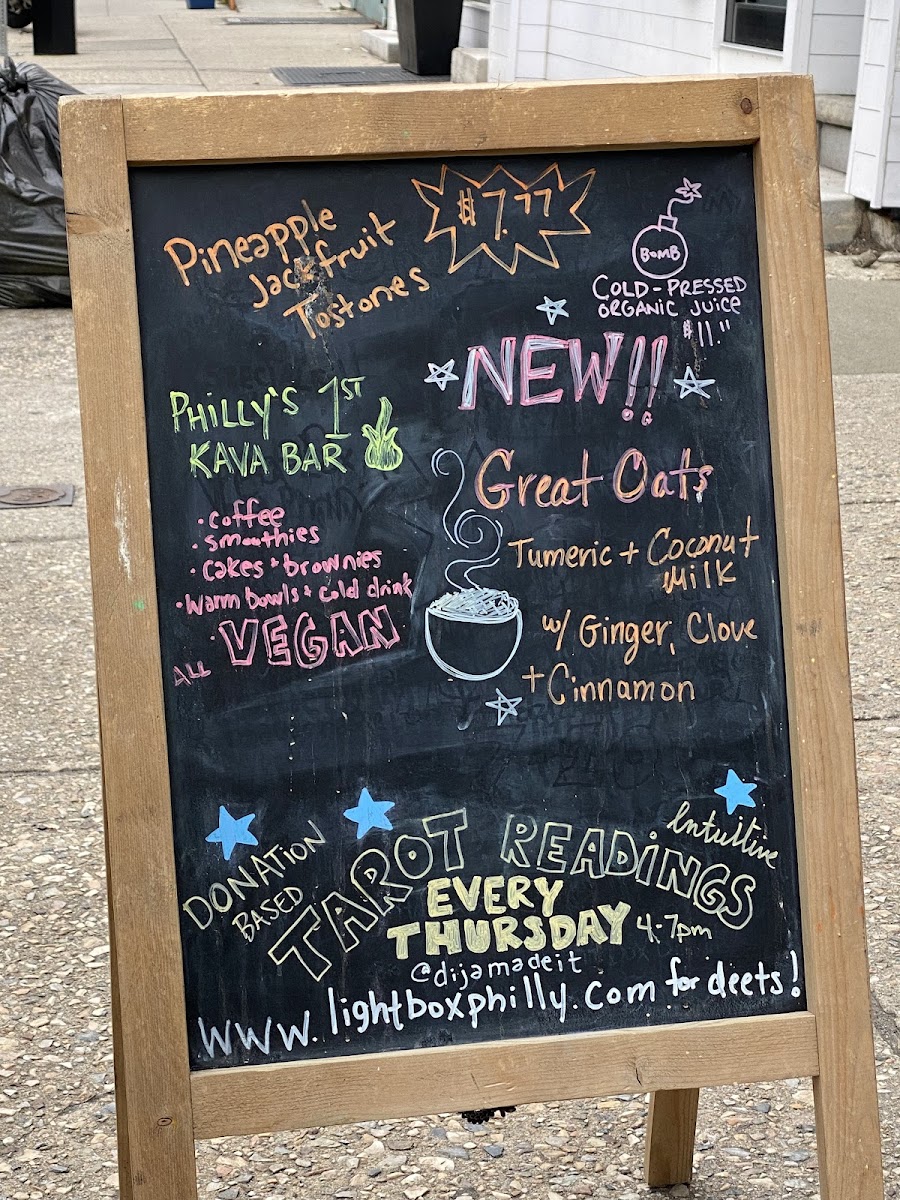 Pineapple
Jackfruit
Tostones
$7.77
BOMB
COLD-PRESSED
ORGANIC JUICE
$11."
NEW!!
PHILLY'S 1ST
KAVA BAR
Great Oats
• coffee
• smoothies
• cakes + brownies
• Warm bowls + cold drink
ALL VEGAN
Tumeric + Coconut
Milk
w/ Ginger, Clove
+ Cinnamon
DONATION
BASED
TAROT READINGS
Intuitive
EVERY
THURSDAY 4-7pm
@dijamadeit
www.lightboxphilly.com for deets!